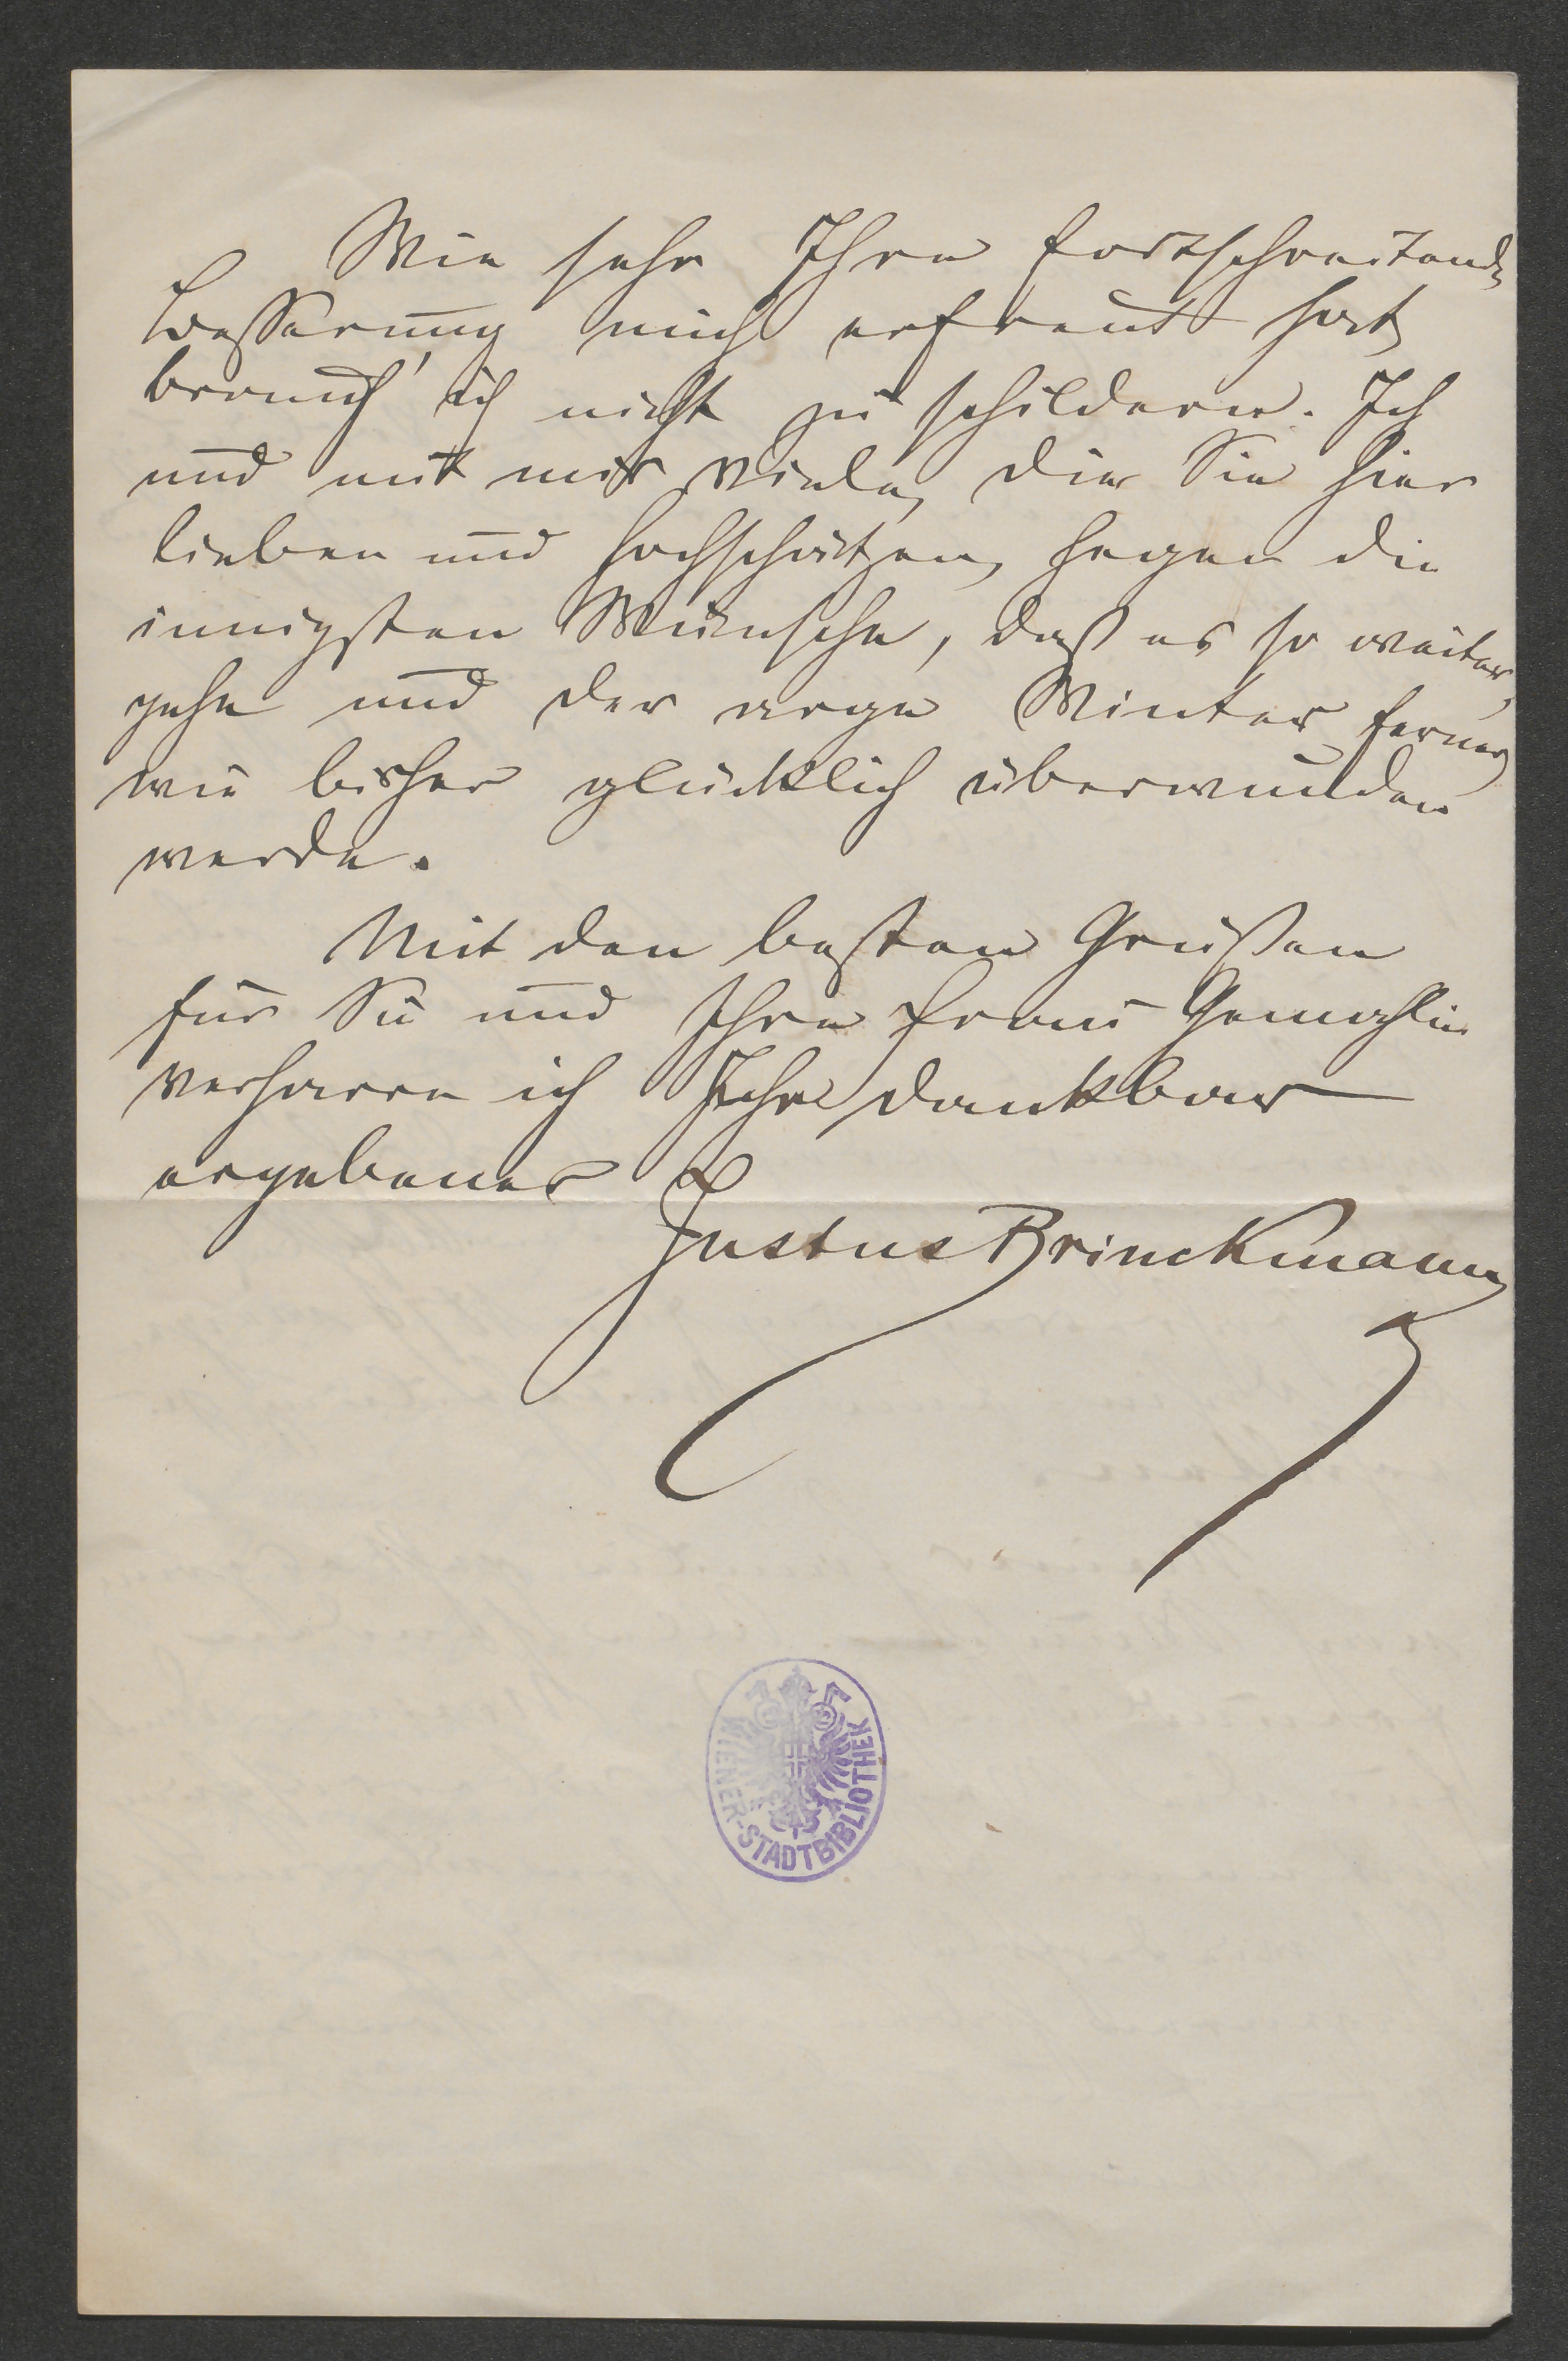 Wie sehr Ihre fortschreitende
Besserung mich erfreut hat,
brauch' ich nicht zu schildern. Ich
und mit mir Viele, die Sie hier
lieben und hochschätzen, hegen die
innigsten Wünsche, daß es so weiter
gehe und der arge Winter ferner,
wie bisher glücklich überwunden
werde.
Mit den besten Grüßen
für Sie und Ihre Frau Gemahlin
verharre ich Ihr dankbar
ergebener
Justus Brinckmann
WIENER-STADTBIBLIOTHEK